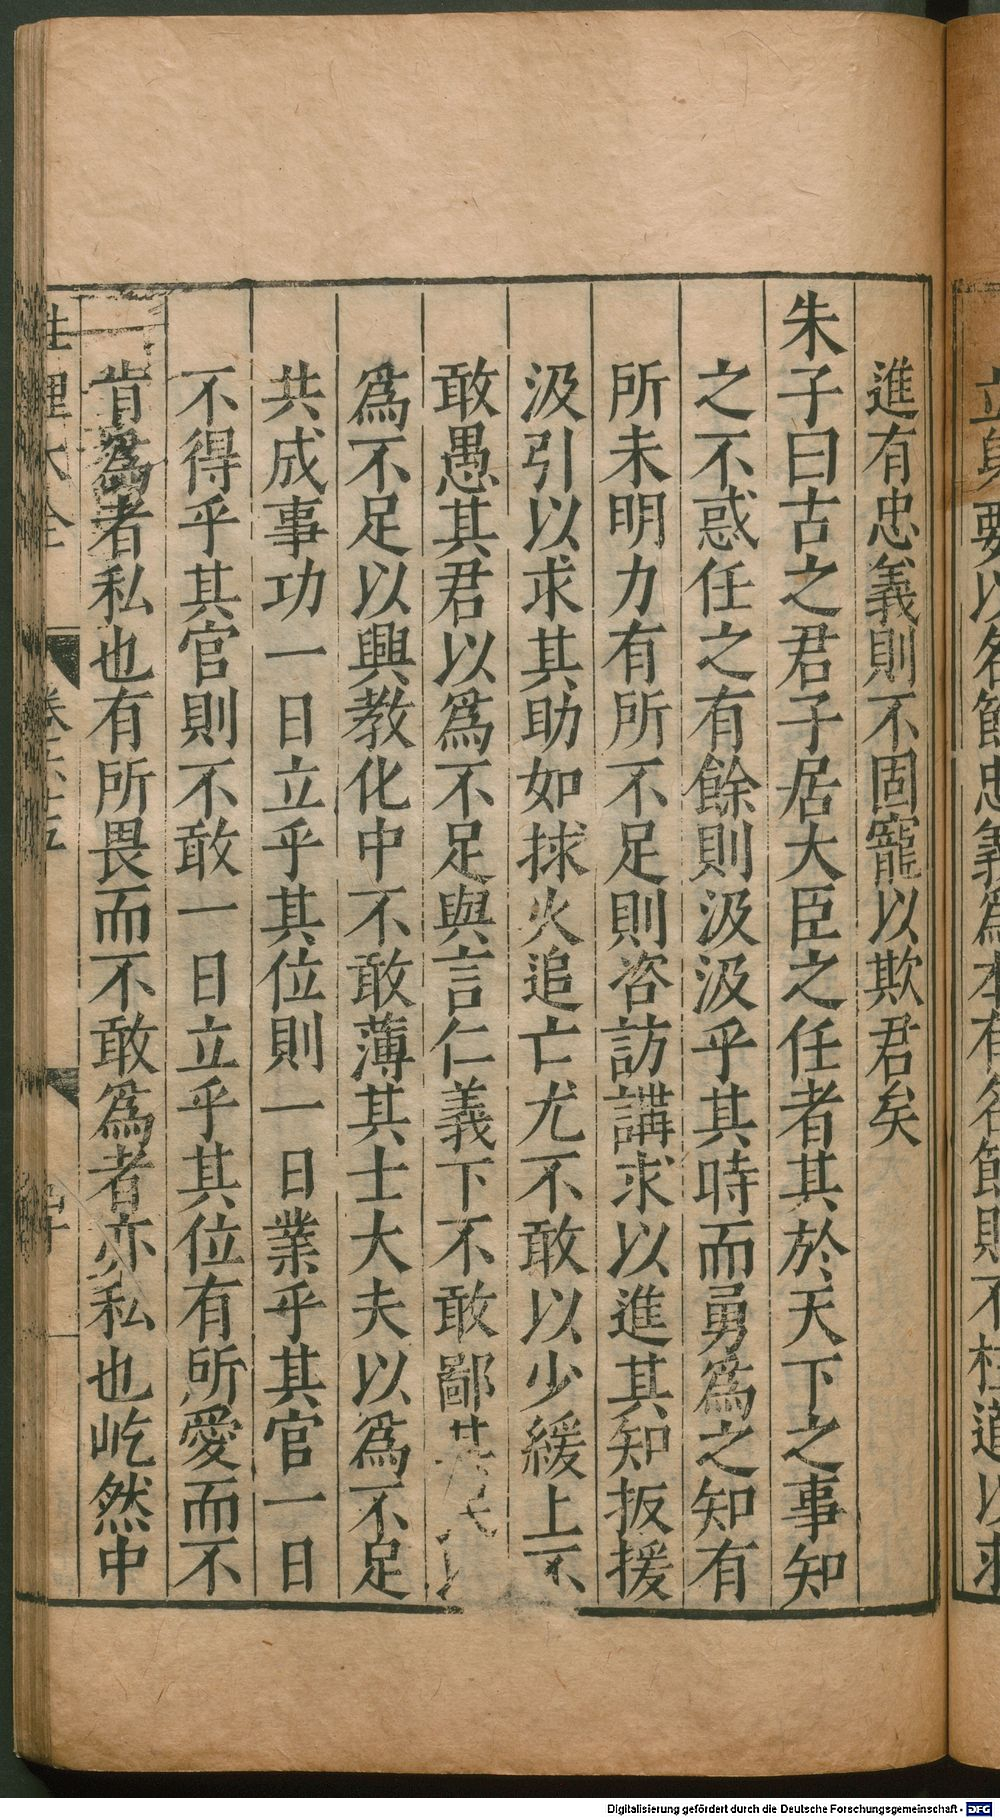 進有忠義則不固寵以欺君矣
朱子曰古之君子居大臣之任者其於天下之事知
之不惑任之有餘則汲汲乎其時而勇爲之知有
所未明力有所不足則咨訪講求以進其知扳援
汲引以求其助如捄火追亡尤不敢以少緩上不
敢愚其君以爲不足與言仁義下不敢鄙其民以
爲不足以興教化中不敢薄其士大夫以爲不足
共成事功一日立乎其位則一日業乎其官一日
不得乎其官則不敢一日立乎其位有所愛而不
肯爲者私也有所畏而不敢爲者亦私也屹然中
性理大全
立身要以名節忠義爲本有名節則不枉道以求
Digitalisierung gefördert durch die Deutsche Forschungsgemeinschaft - DFG